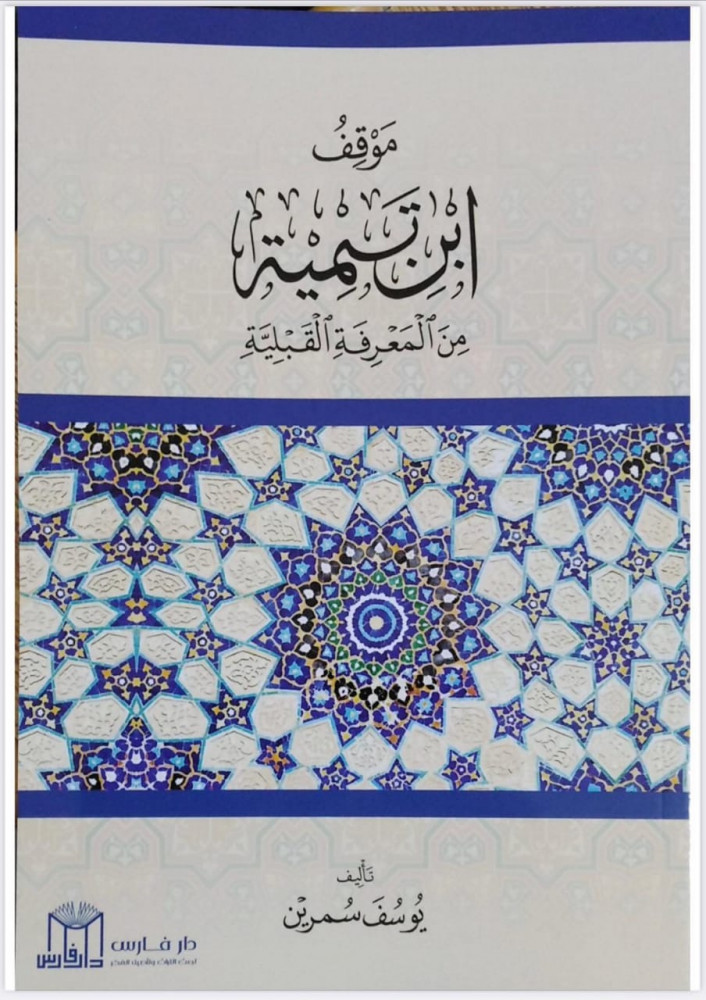 مَوْقِفُ
ابْنِ تَيْمِيَة
مِنَ ٱلْمَعْرِفَةِ ٱلْقَبْلِيَّةِ
تَأْلِيف
يُوسُفَ سمرين
دار فارس
دار فارس